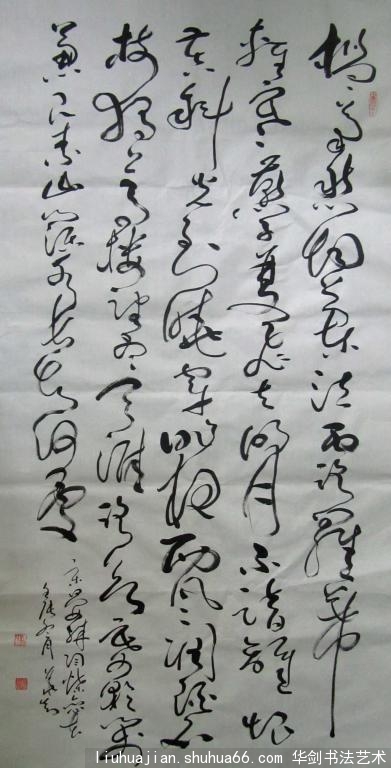 槛菊愁烟兰泣露罗幕
轻寒燕子双飞去明月不谙离恨
苦斜光到晓穿朱户昨夜西风凋碧
树独上高楼望尽天涯路欲寄彩笺
兼尺素山阔水长知何处
宋晏殊词蝶恋花
liuhuajian.shuhua66.com 华剑书法艺术